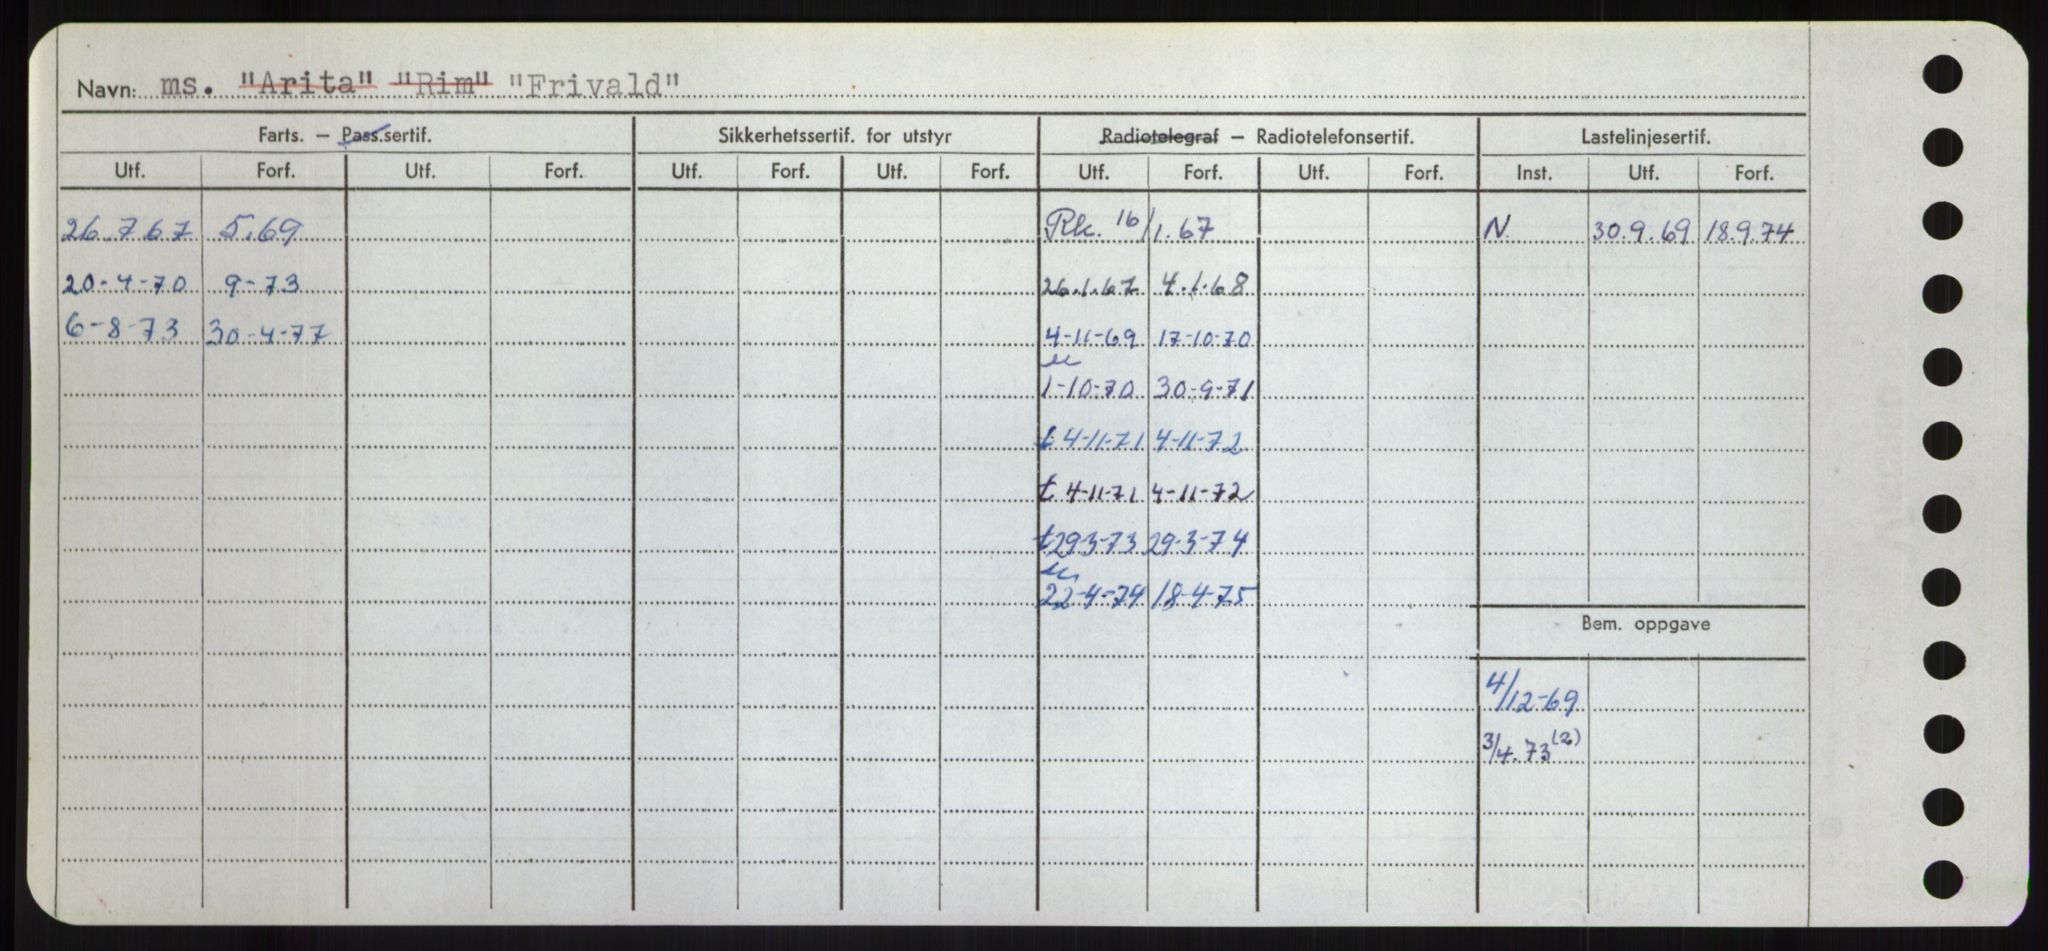 Navn: ms. "Arita" "Rim" "Frivald"
Farts. — Pass.sertif. Sikkerhetssertif. for utstyr Radiotelegraf — Radiotelefonsertif. Lastelinjesertif.
Utf. Forf. Utf. Forf. Utf. Forf. Utf. Forf. Utf. Forf. Utf. Forf. Inst. Utf. Forf.
26.7.67 5.69 Rk. 16/1.67 N. 30.9.69 18.9.74
20-4-70 9-73 26.1.67 4.1.68
6-8-73 30-4-77 4-11-69 17-10-70
1-10-70 30-9-71
t 4-11-71 4-11-72
t 4-11-71 4-11-72
t 29-3-73 29-3-74
22-4-74 18-4-75
Bem. oppgave
4/12-69
3/4.73 (2)